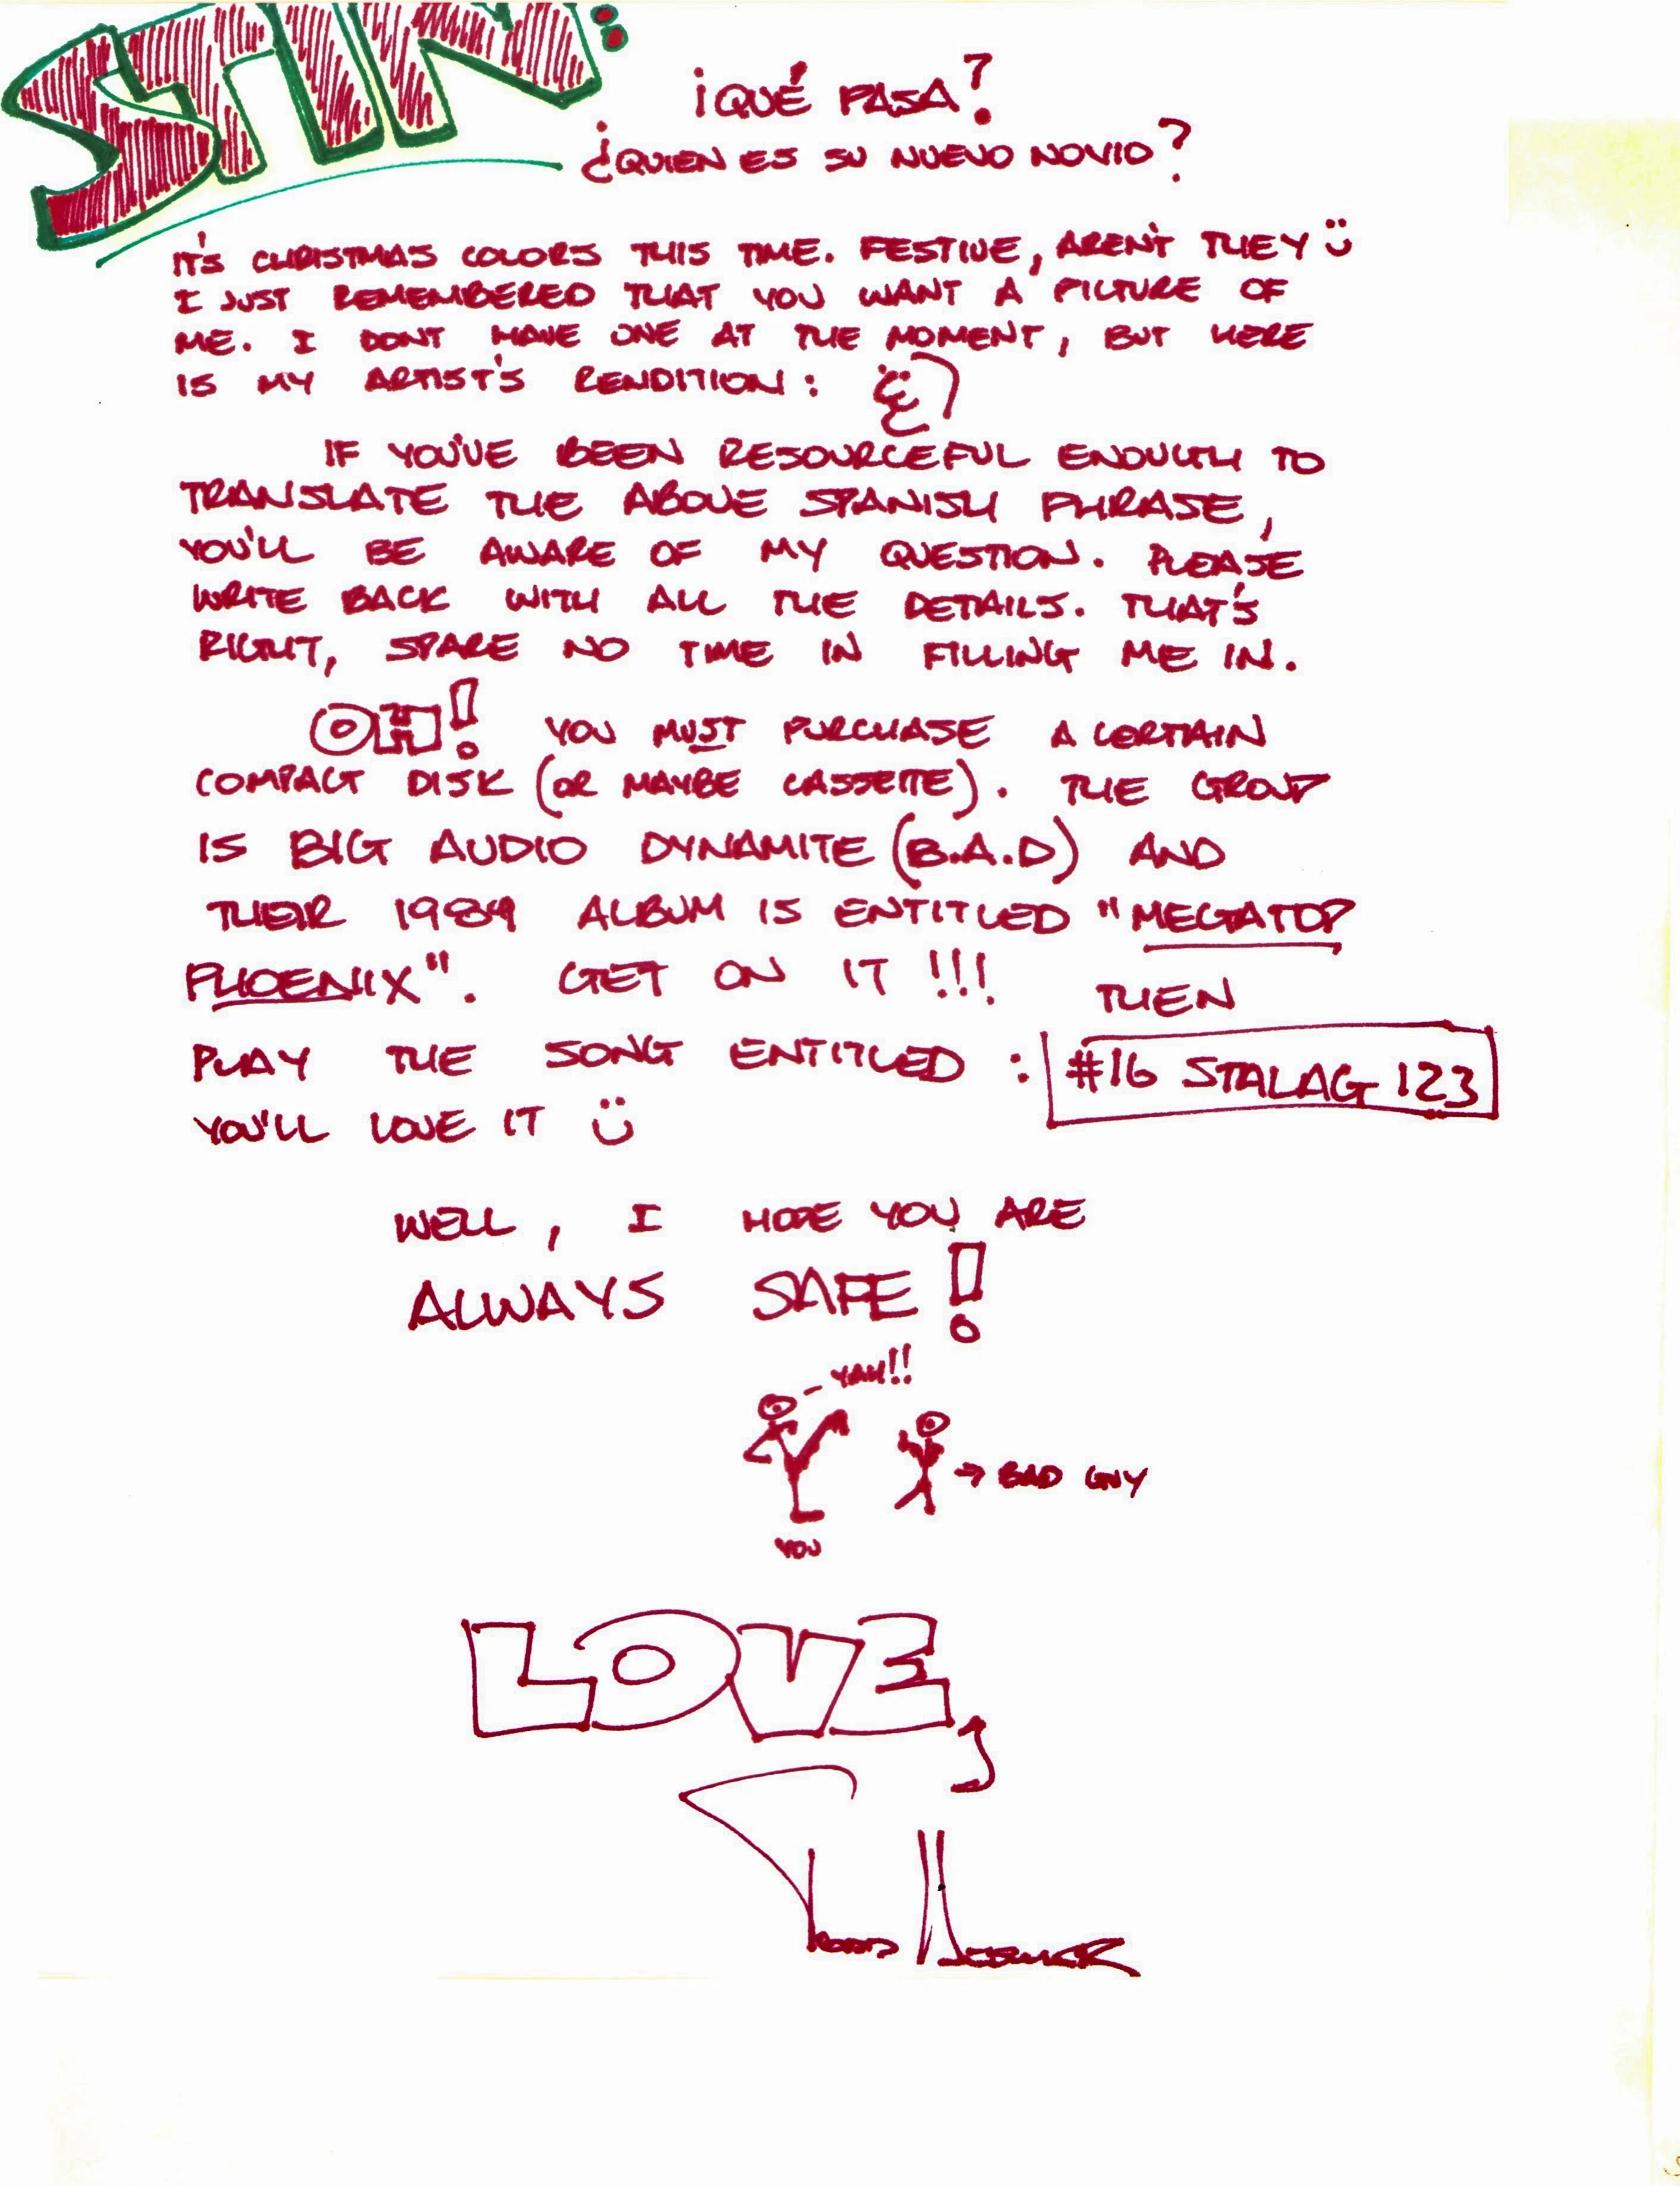 ¡QUÉ PASA?
¿QUIEN ES SU NUEVO NOVIO?
IT'S CHRISTMAS COLORS THIS TIME. FESTIVE, AREN'T THEY
I JUST REMEMBERED THAT YOU WANT A PICTURE OF
ME. I DONT HAVE ONE AT THE MOMENT, BUT HERE
IS MY ARTIST'S RENDITION:
IF YOU'VE BEEN RESOURCEFUL ENOUGH TO
TRANSLATE THE ABOVE SPANISH PHRASE,
YOU'LL BE AWARE OF MY QUESTION. PLEASE
WRITE BACK WITH ALL THE DETAILS. THAT'S
RIGHT, SPARE NO TIME IN FILLING ME IN.
OH! YOU MUST PURCHASE A CERTAIN
COMPACT DISK (OR MAYBE CASSETTE). THE GROUP
IS BIG AUDIO DYNAMITE (B.A.D) AND
THEIR 1989 ALBUM IS ENTITLED "MEGATOP
PHOENIX". GET ON IT!!! THEN
PLAY THE SONG ENTITLED: #16 STALAG 123
YOU'LL LOVE IT
WELL, I HOPE YOU ARE
ALWAYS SAFE!
YAH!!
→ BAD GUY
YOU
LOVE,